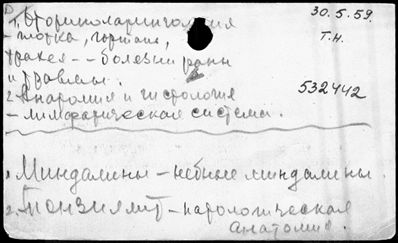 1. Оториноларингология 30.5.59.
- глотка, гортань, Т.Н.
трахея - - болезни раны
и травмы.
2. Анатомия и гистология 532442
- лимфатическая система.
1. Миндалины - небные миндалины.
2. Тонзиллит - патологическая
анатомия.